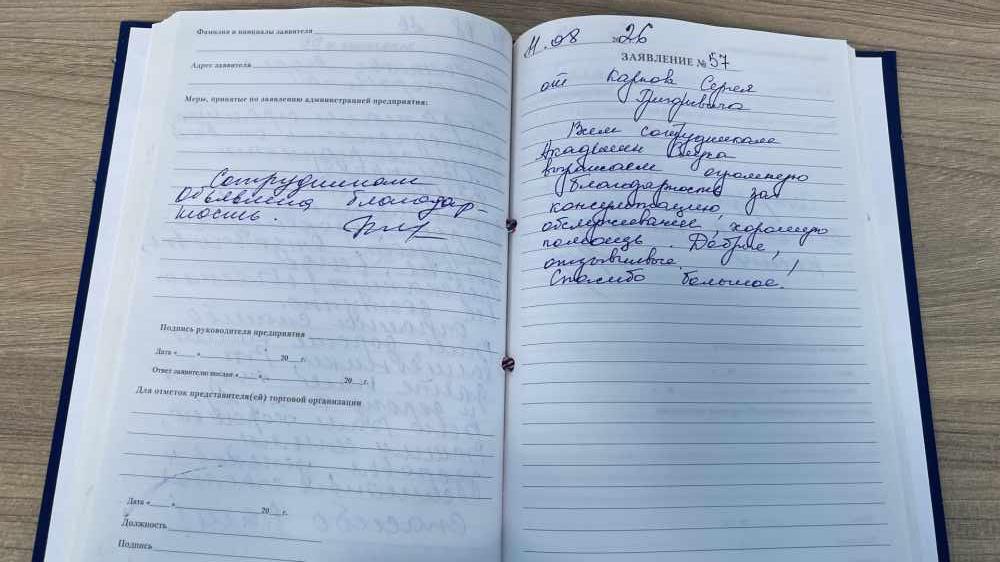 Фамилия и инициалы заявителя
Адрес заявителя
Меры, принятые по заявлению администрацией предприятия:
Сотрудникам
объявлена благодар-
ность.
Подпись руководителя предприятия
Дата «___»___ 20__г.
Ответ заявителю послан «___»___ 20__г.
Для отметок представителя(ей) торговой организации
Дата «___»___ 20__г.
Должность
Подпись
11.08 26
ЗАЯВЛЕНИЕ № 57
от Карпова Сергея
Григорьевича
Всем сотрудникам
Академии
выражаем огромную
благодарность за
консультацию,
обслуживание, хорошую
помощь. Добрые,
отзывчивые.
Спасибо большое!